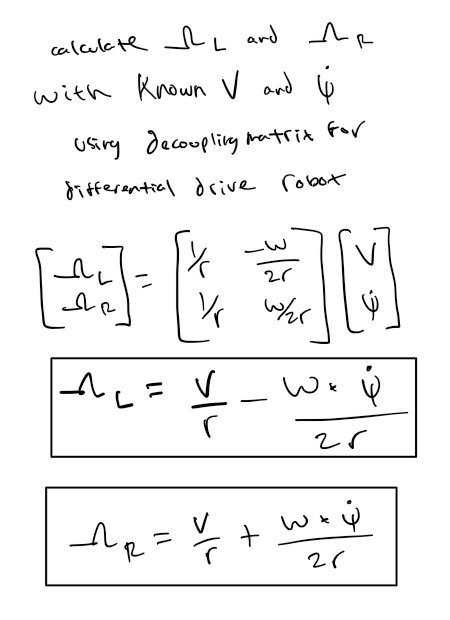 calculate Ω_L and Ω_R
with known V and ψ̇
using decoupling matrix for
differential drive robot
[Ω_L; Ω_R] = [1/r, -w/2r; 1/r, w/2r] [V; ψ̇]
Ω_L = V/r - w * ψ̇/2r
Ω_R = V/r + w * ψ̇/2r